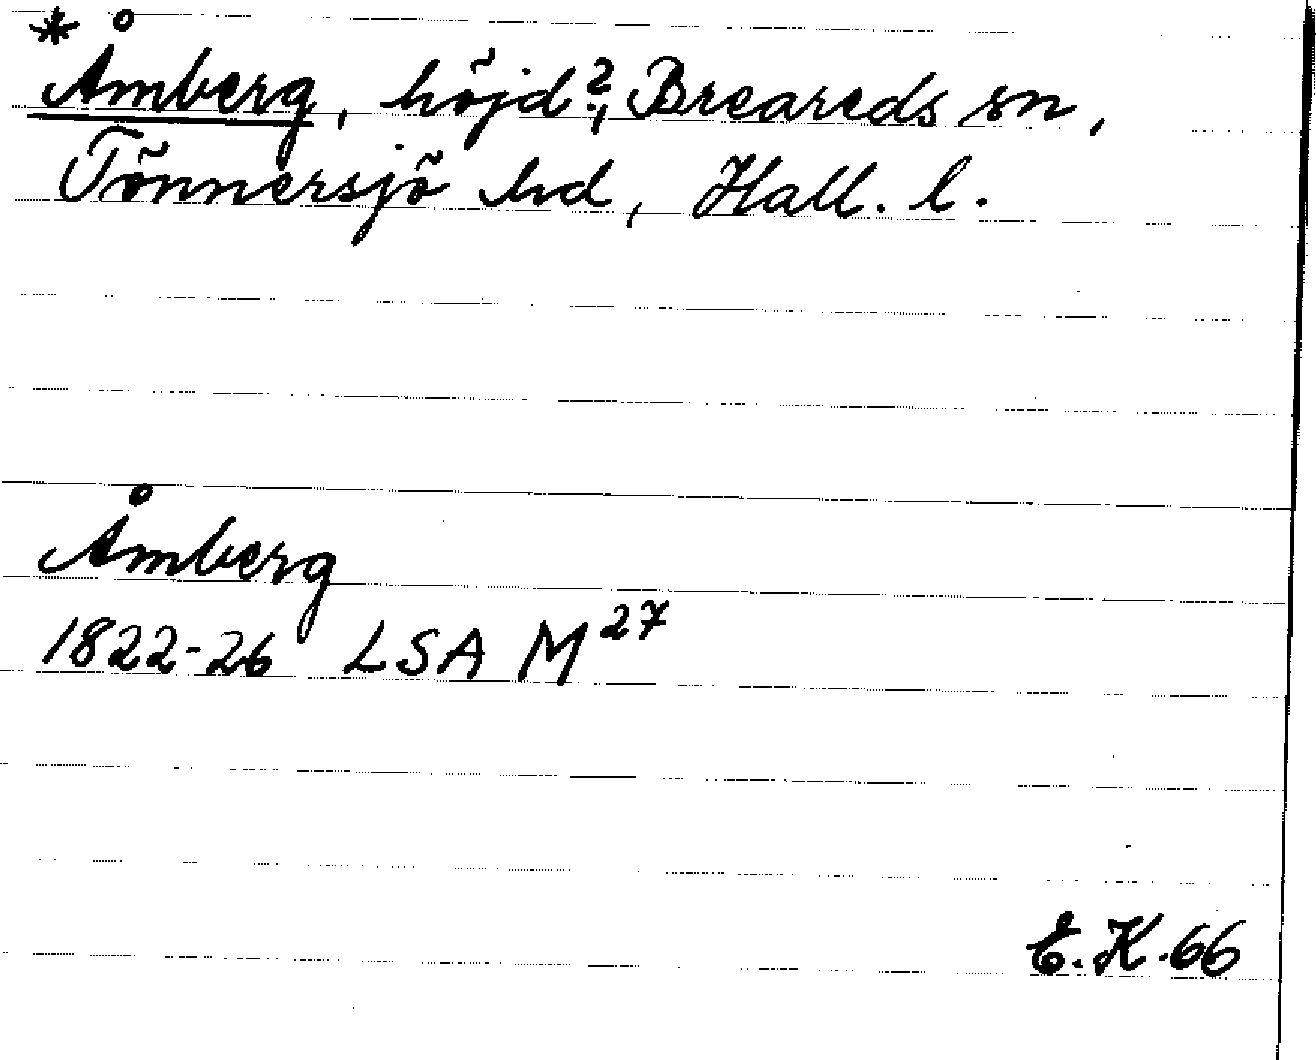 *Åmberg, höjd?, Breareds sn,
Tönnersjö hd, Hall. l.
Åmberg
1822-26 LSA M 27
E.K.66